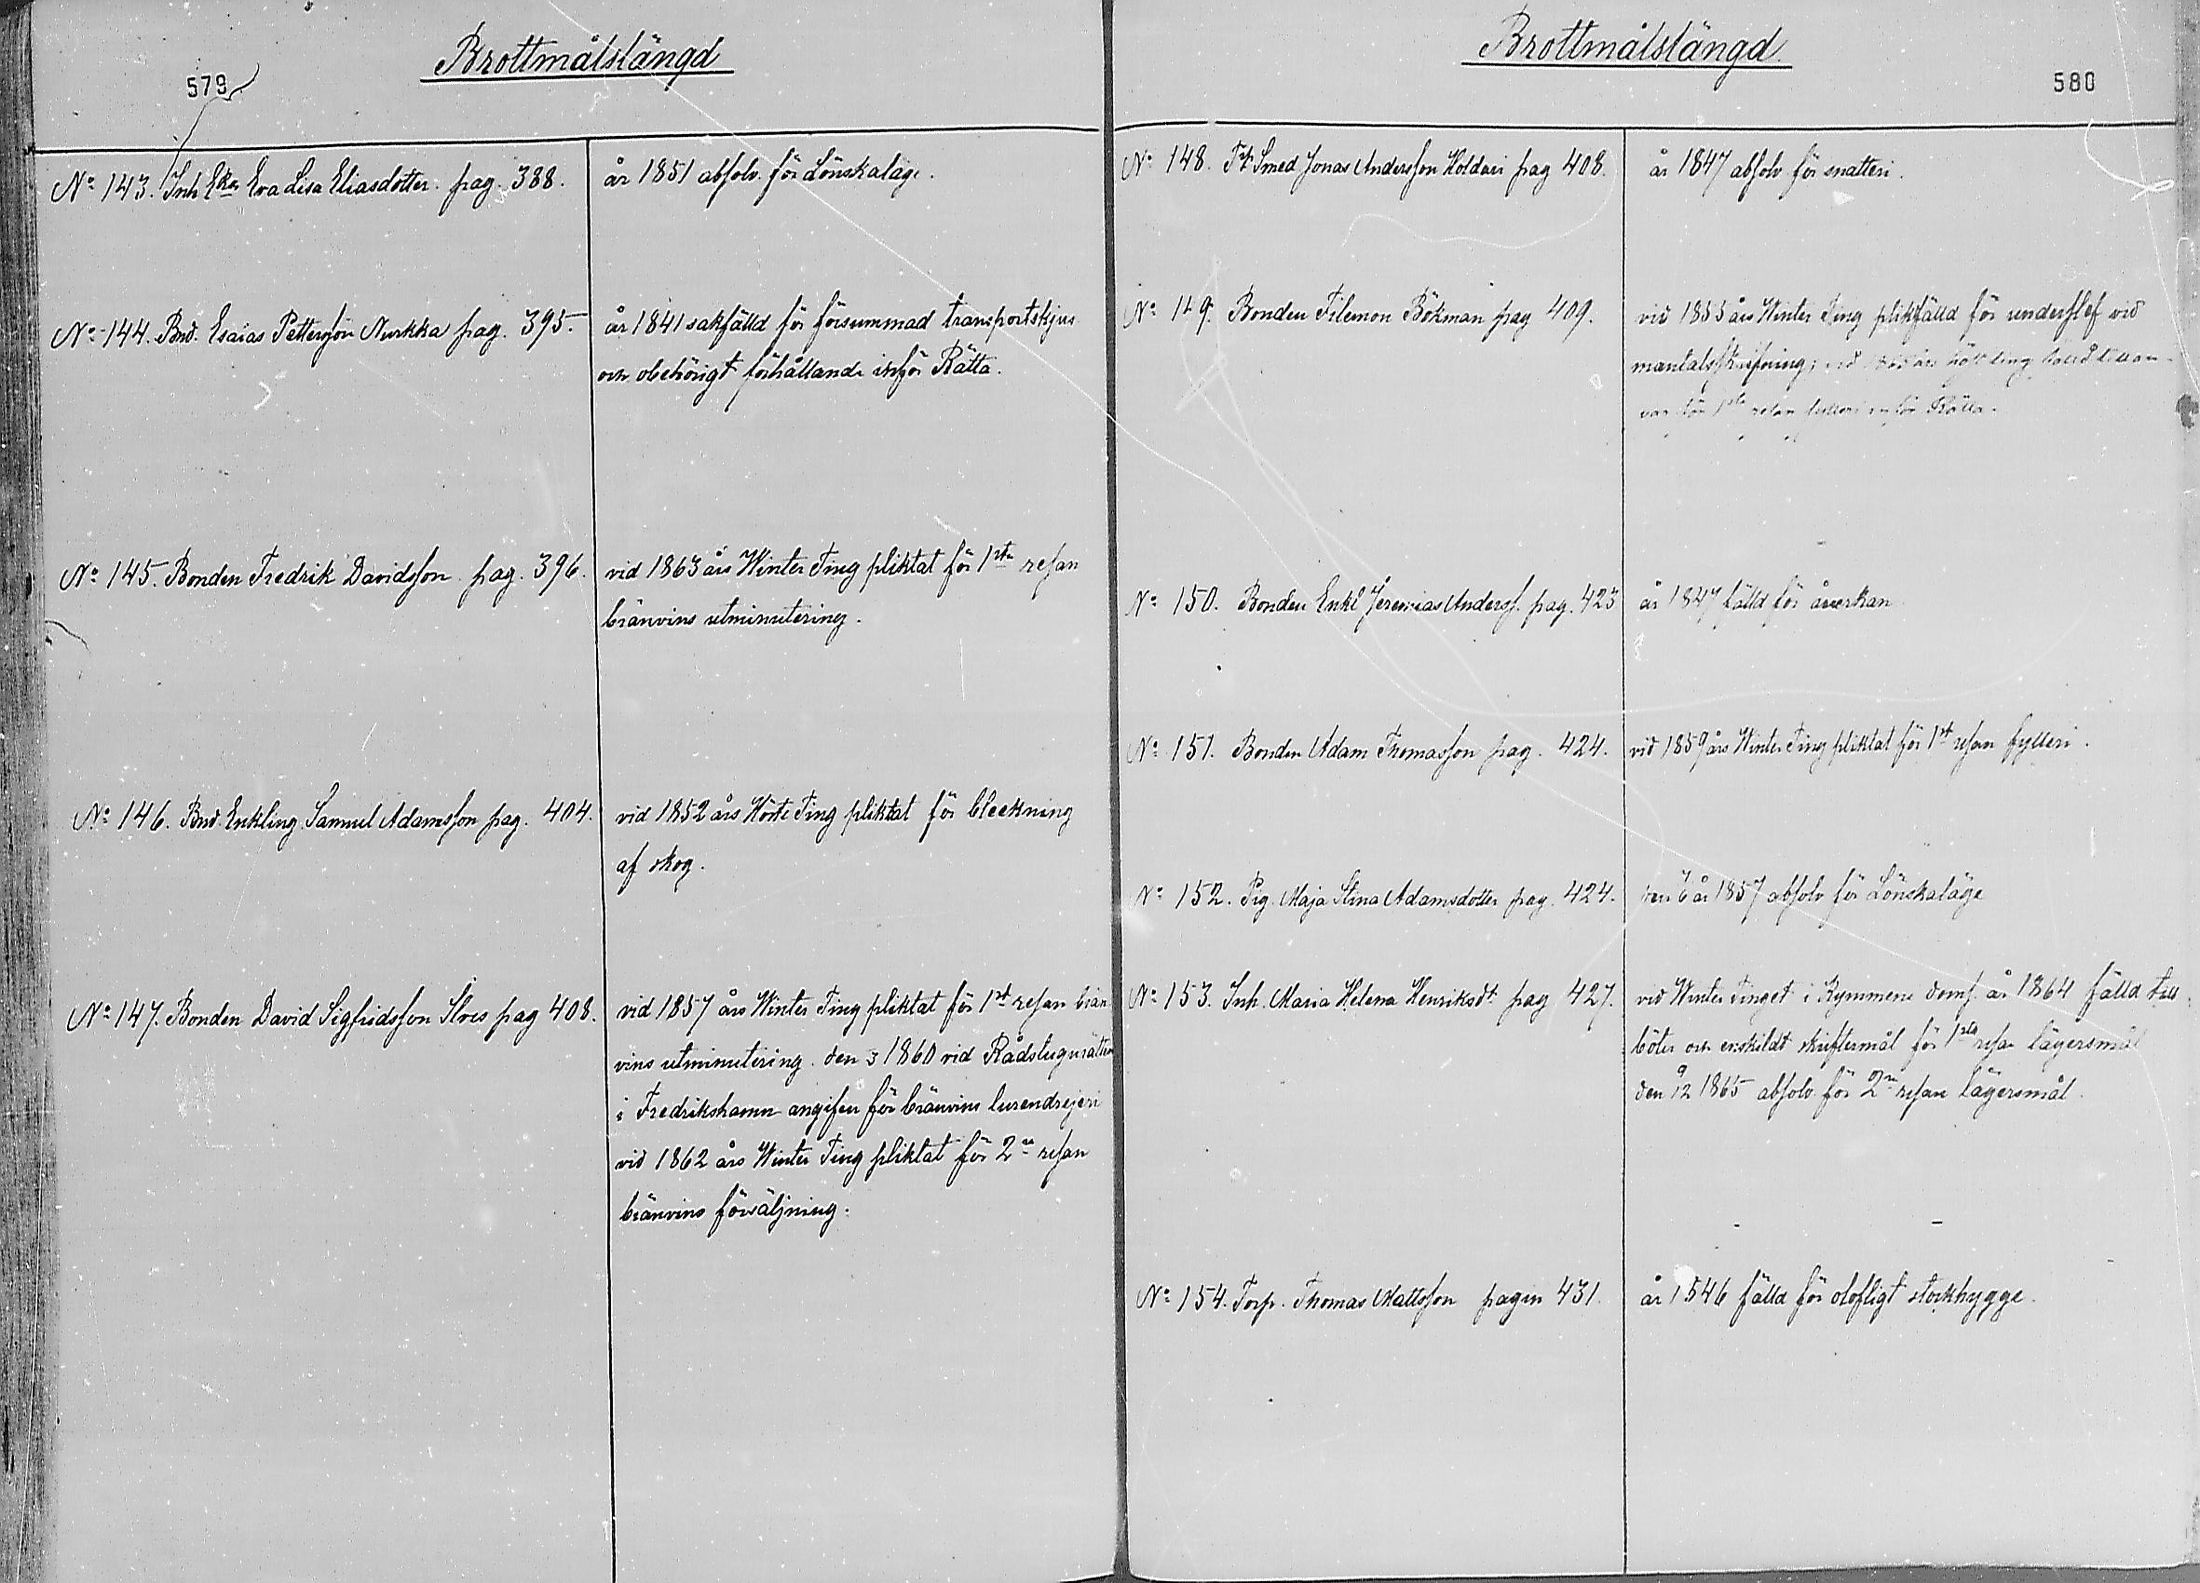 Brottmålslängd
579
No 143. Inh. Eka Eva Lisa Eliasdotter. pag. 388.
år 1851 absolv. för Lönskaläge.
No 144. Bnd. Esaias Pettersson Nurkka pag. 395.
år 1841 sakfälld för försummad transportskjus
och obehörigt förhållande inför Rätta.
No 145. Bonden Fredrik Davidsson pag. 396.
vid 1863 års Winter Ting pliktat för 1sta resan
bränvins utminutering.
No 146. Bnd. Enkling Samuel Adamsson pag. 404.
vid 1852 års Höste Ting pliktat för bleckning
af skog.
No 147. Bonden David Sigfridsson Ilves pag 408.
vid 1857 års Winter Ting pliktat för 1st resan brän
vins utminutering. den 3 1860 vid Rådstugurätten
i Fredrikshamn angifven för bränvins lurendrejeri
vid 1862 års Winter Ting pliktat för 2n resan
bränvins försäljning.
Brottmålslängd
580
No 148. Smed Jonas Andersson pag 408.
år 1847 absolv för snatteri.
No 149. Bonden Filemon Bökman pag 409.
vid 1855 års Winter Ting pliktfälld för underslef vid
mantalsskrifning; vid års höst ting
för 1sta resan fylleri inför Rätta.
No 150. Bonden Enkl Jeremias Anderss. pag. 423
år 1847 fälld för åverkan
No 151. Bonden Adam Thomasson pag. 424.
vid 1859 års Winter Ting pliktat för 1st resan fylleri.
No 152. Pig. Maja Stina Adamsdotter pag. 424.
år 1857 absolv för Lönskaläge
No 153. Inh. Maria Helena Henriksdt pag 427.
vid Winter Tinget i Kymmene doms. år 1864 fälld till
böter och enskildt skriftermål för 1sta resan lägersmål
den 9/12 1865 absolv. för 2n resan lägersmål.
No 154. Torp. Thomas Mattsson pagin 431.
år 1846 fälld för olofligt stockhygge.